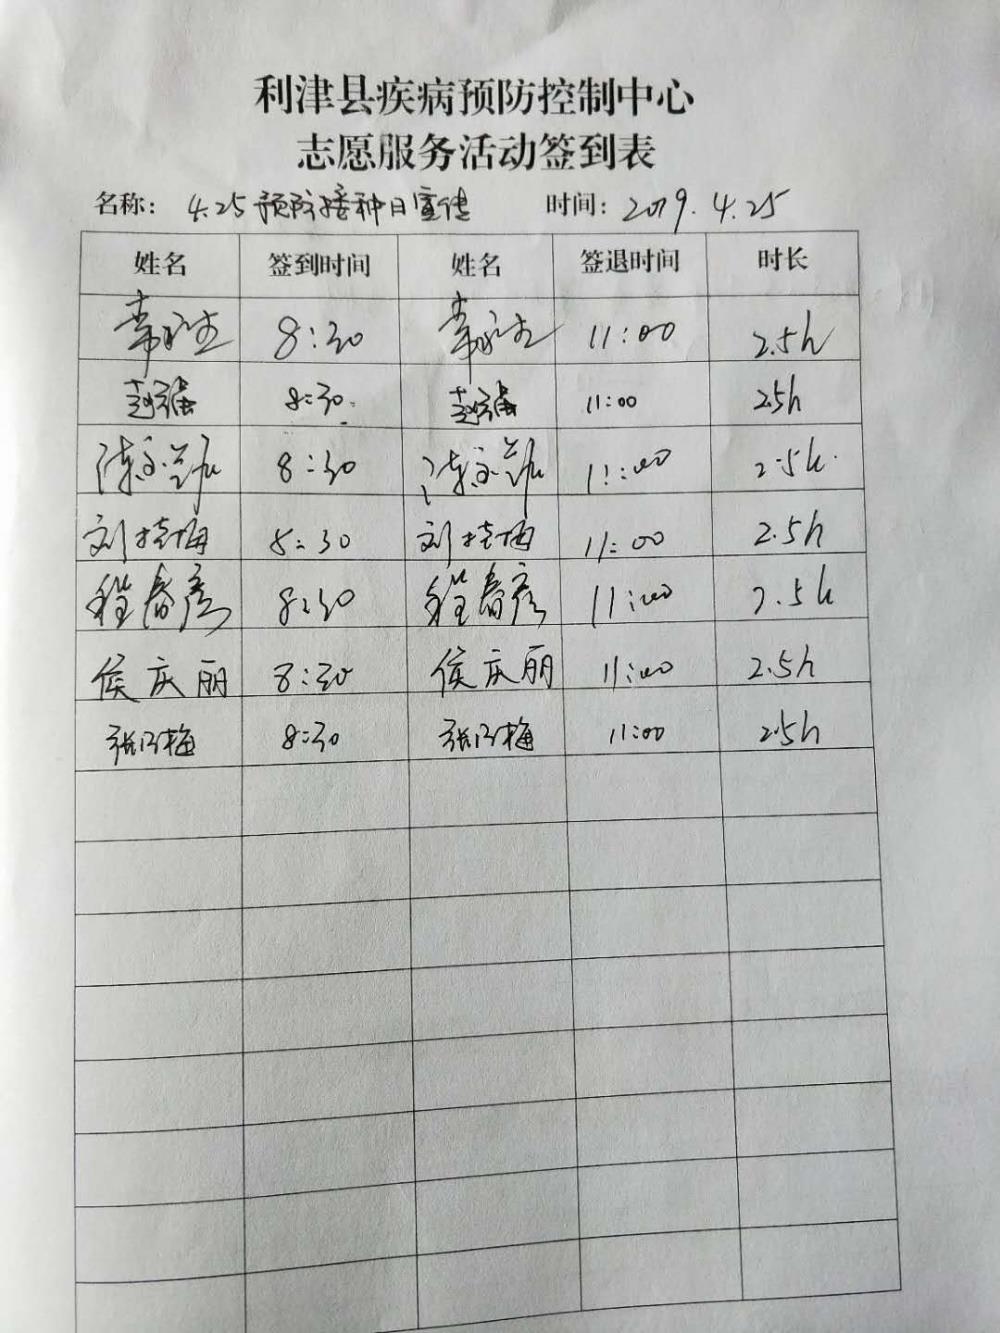 利津县疾病预防控制中心
志愿服务活动签到表
名称: 4.25预防接种日宣传 时间: 2019.4.25
姓名 签到时间 姓名 签退时间 时长
8:30 11:00 2.5h
赵强 8:30. 赵强 11:00 2.5h
8:30 11:00 2.5h.
刘桂梅 8:30 刘桂梅 11:00 2.5h
程春彦 8:30 程春彦 11:00 2.5h
侯庆丽 8:30 侯庆丽 11:00 2.5h
8:30 11:00 2.5h